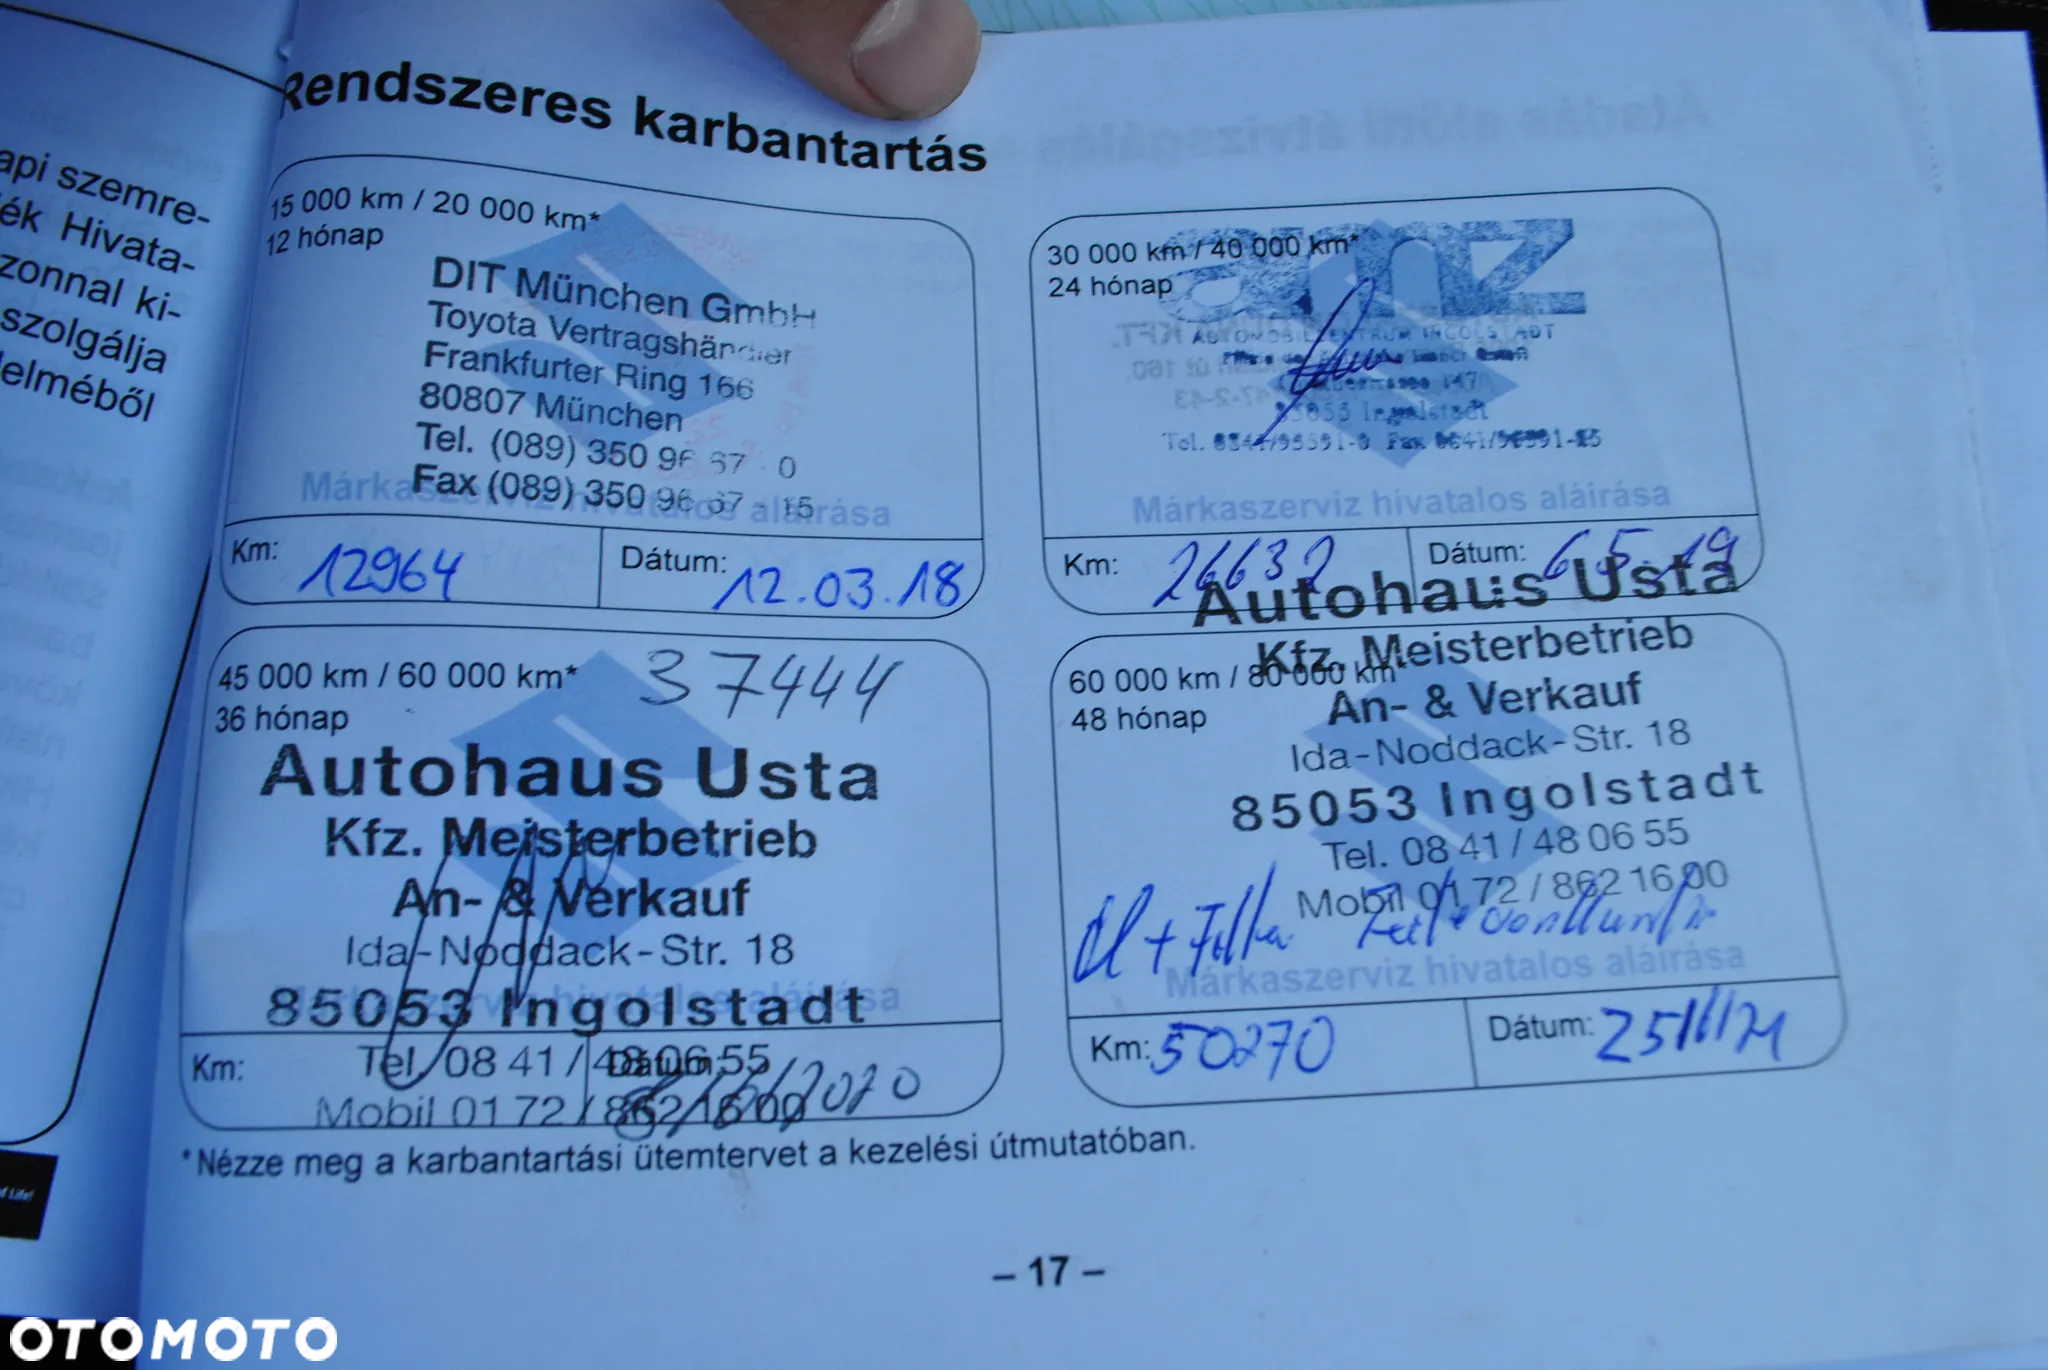 api szemre-
ék Hivata-
zonnal ki-
szolgálja
elméből
Rendszeres karbantartás
15 000 km / 20 000 km*
12 hónap
DIT München GmbH
Toyota Vertragshändler
Frankfurter Ring 166
80807 München
Tel. (089) 350 96 67 - 0
Fax (089) 350 96 67 - 15
Márkaszerviz hivatalos aláírása
Km: 12964 Dátum: 12.03.18
30 000 km / 40 000 km*
24 hónap
AUTOMOBILZENTRUM INGOLSTADT
85055 Ingolstadt
Márkaszerviz hivatalos aláírása
Km: 26632 Dátum: 6.5.19
45 000 km / 60 000 km* 37444
36 hónap
Autohaus Usta
Kfz. Meisterbetrieb
An- & Verkauf
Ida-Noddack-Str. 18
85053 Ingolstadt
Tel. 08 41 / 48 06 55
Mobil 01 72 / 862 16 00
Km: Dátum:
60 000 km / 80 000 km*
48 hónap
Autohaus Usta
Kfz. Meisterbetrieb
An- & Verkauf
Ida-Noddack-Str. 18
85053 Ingolstadt
Tel. 08 41 / 48 06 55
Mobil 01 72 / 862 16 00
Márkaszerviz hivatalos aláírása
Km: 50270 Dátum:
*Nézze meg a karbantartási ütemtervet a kezelési útmutatóban.
– 17 –
of Life!
OTOMOTO